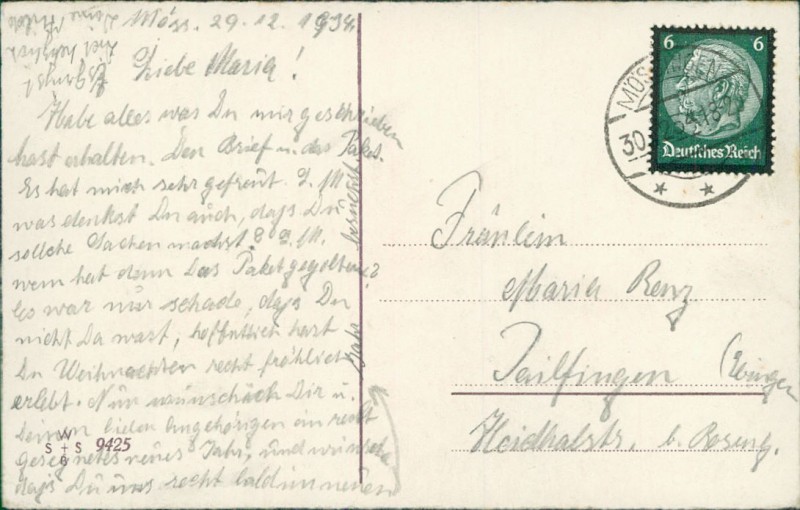 Möss. 29.12.1934
Liebe Maria!
Habe alles was Du mir geschrieben
hast erhalten. Den Brief u. das Paket.
Es hat mich sehr gefreut. L. M.
was denkst Du auch, dass Du
sollche Sachen machst? L. M.
wem hat denn das Paket gegolten?
Es war nur schade, dass Du
nicht Da warst, hoffentlich hast
Du Weihnachten recht fröhlich
erlebt. Nun wünsch ich Dir u.
Deinen lieben Angehörigen ein recht
gesegnetes neues Jahr, und wünsche
dass Du uns recht bald im neuen
Jahr besuchst
W
S + S
B
9425
6 6
Deutsches Reich
MÖSSINGEN
30.
Fräulein
Maria Renz
Tailfingen
Heidhalstr. b.